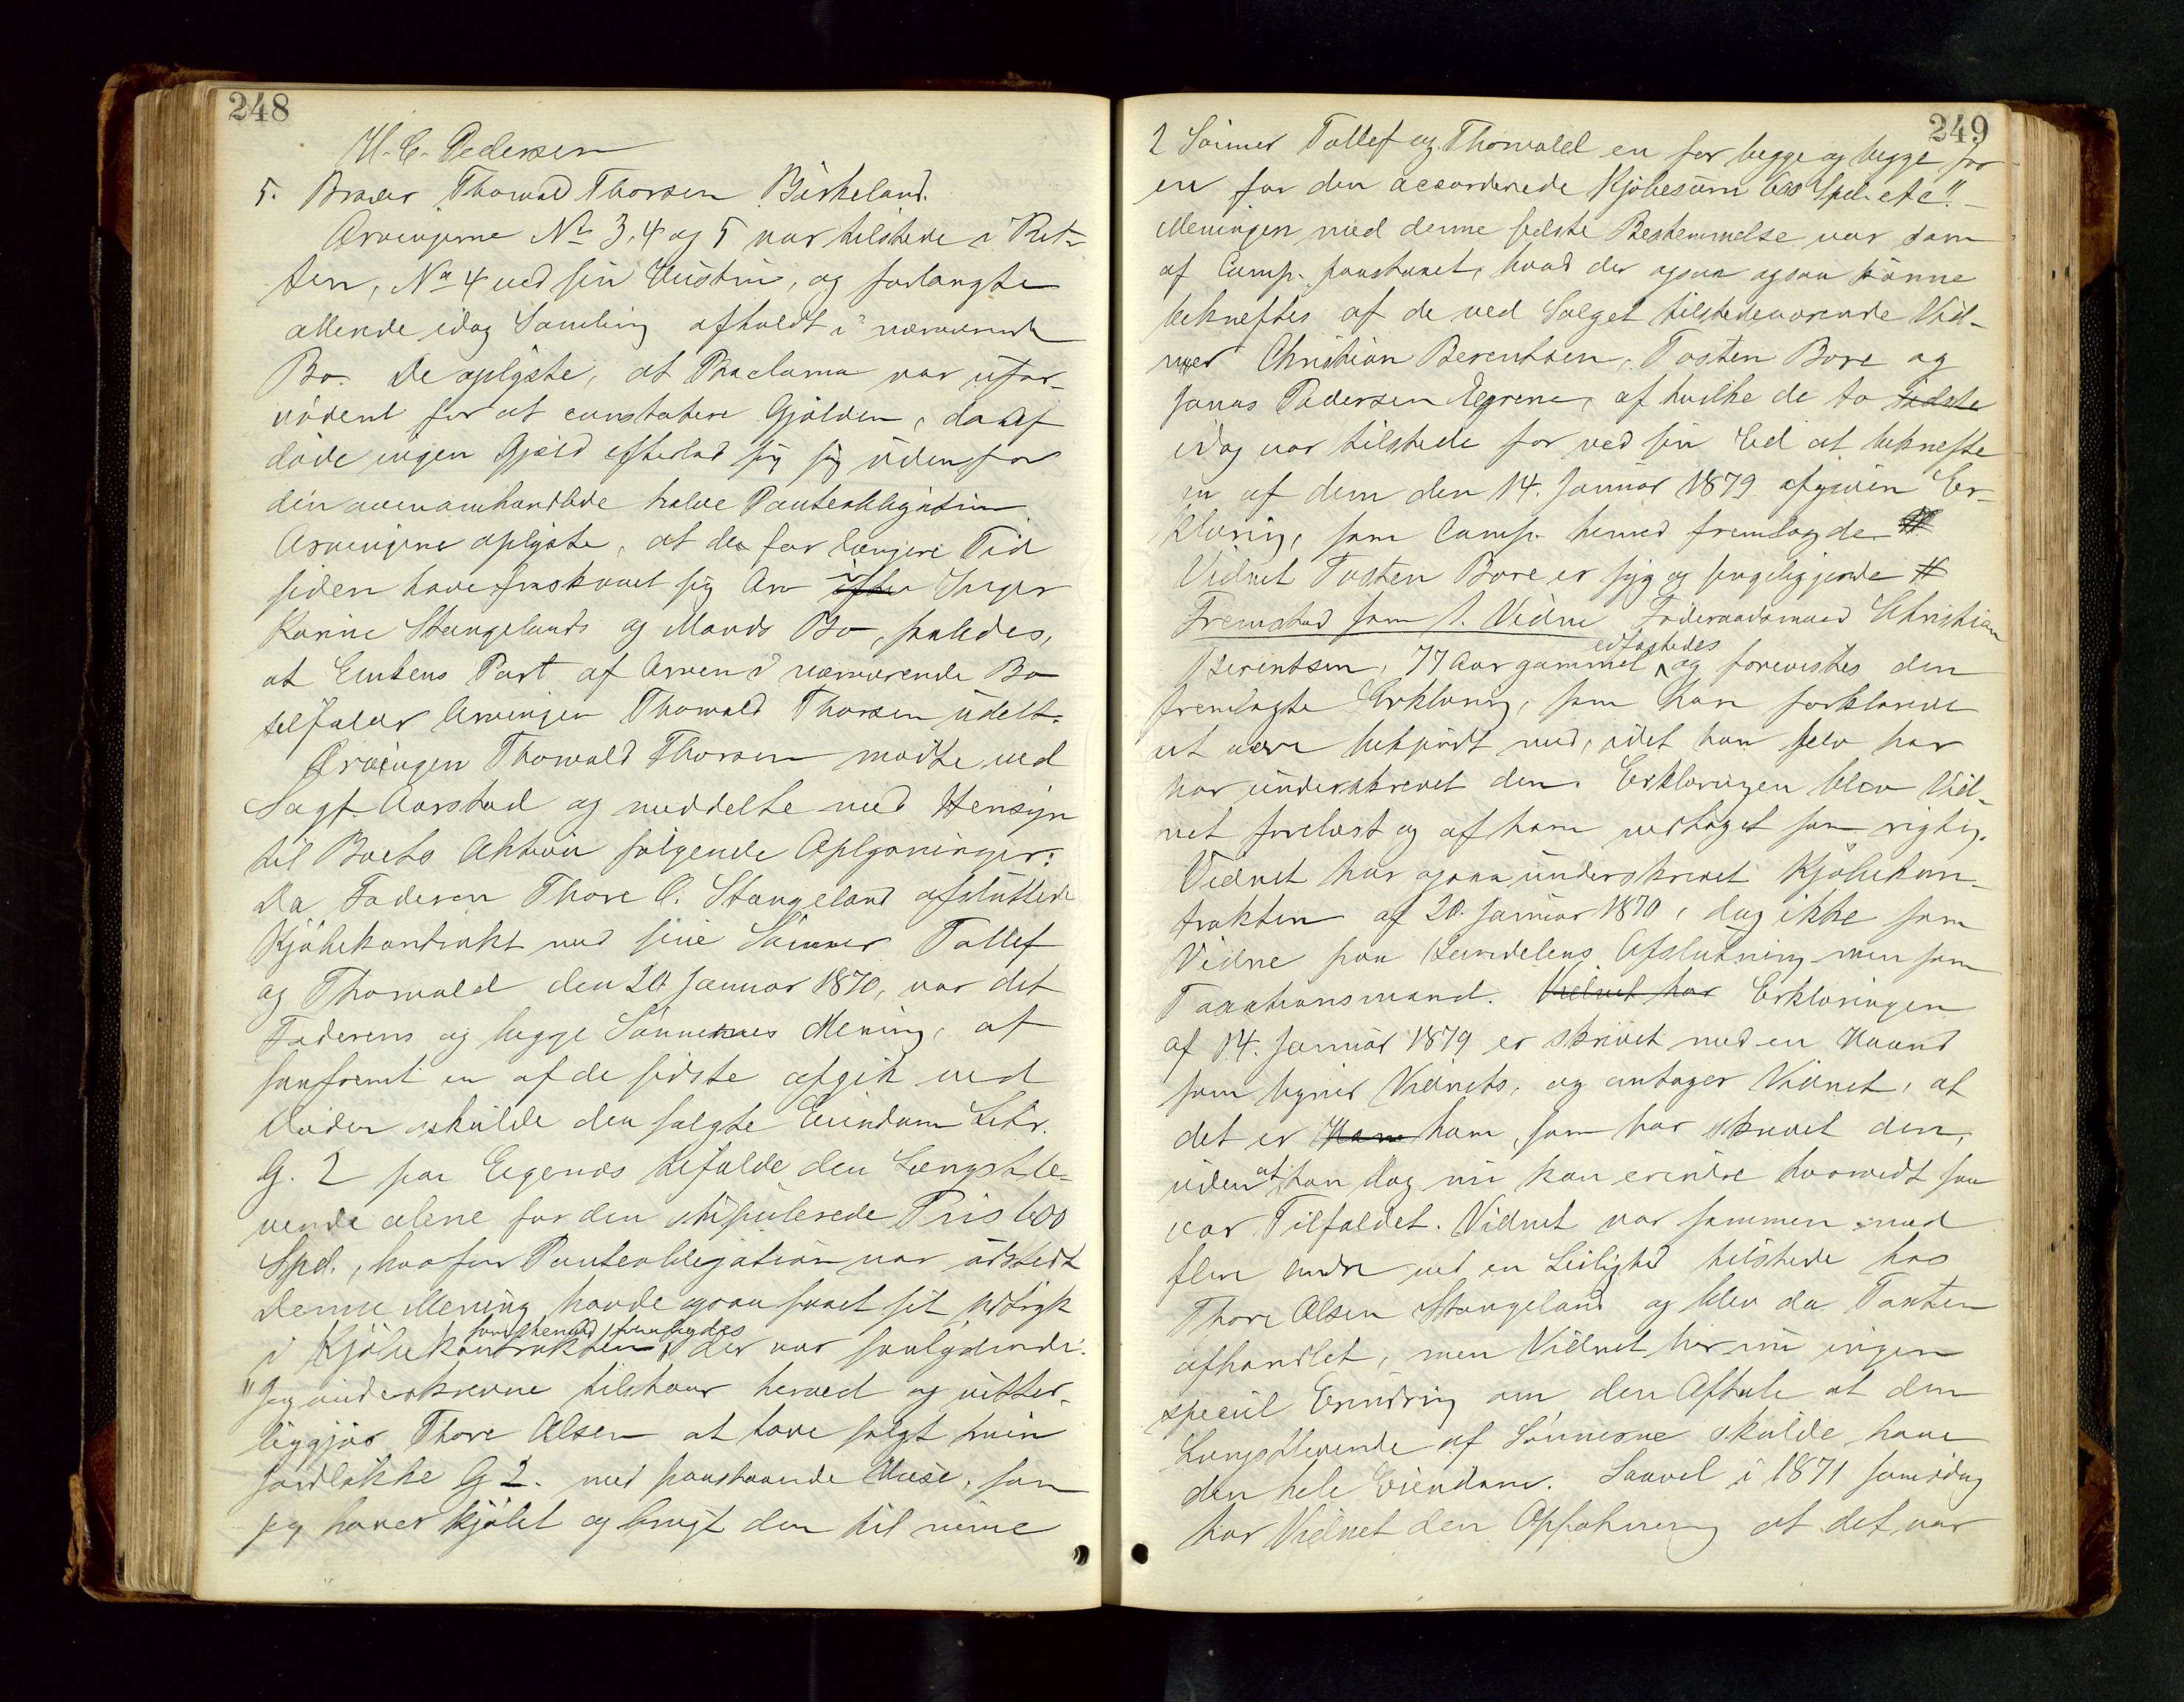 248
H. C. Pedersen
5. Broder Thorvald Thorsen Birkeland.
Arvingerne No 3, 4 og 5 var tilstede i Ret-
ten, No 4 ved sin Hustru, og forlangte
allerede idag Samling afholdt i nærværende
Bo. De oplyste, at Proclama var ufor-
nödent for at constatere Gjælden, da Af
döde ingen Gjæld efterlod sig sig udenfor
den ovenomhandlede halve Panteobligation
Arvingerne oplyste, at de for længere Tid
siden have fraskrevet sig Arv i Inger
Karine Stangelands og Mands Bo, saaledes,
at Enkens Part af Arven i nærværende Bo
tilfalder Arvingen Thorvald Thorsen udelt.
Arvingen Thorvald Thorsen mödte ved
Sagf. Aarstad og meddelte med Hensyn
til Boets Aktiva fölgende Oplysninger:
Da Faderen Thore O. Stangeland afsluttede
Kjöbekontrakt med sine Sönner Tollef
og Thorvald den 20 Januar 1870, var det
Faderens og begge Sönnernes Mening, at
saafremt en af de sidste afgik ved
Döden skulde den solgte Eiendom Litr.
G. 2 paa Eigenes tilfalde den Længstle-
vende alene for den stipulerede Pris 600
Spd., hvorfor Panteobligation var udstedt
Denne Mening havde ogsaa faaet sit Udtryk
i Kjöbekontrakten, som herved fremlagdes der var saalydende:
"Jeg underskrevne tilstaar herved og vitter-
liggjör Thore Olsen at have solgt min
Jordlökke G 2. med paastaaende Huse, som
jeg haver kjöbt og brugt den til mine
249
2 Sönner Tollef og Thorvald en for begge og begge for
en for den accorderede Kjöbesum 600 Spd. etc".
Meningen med denne sidste Bestemmelse var som
af Comp. paastaaet, hvad der ogsaa ogsaa könne
bekræftes af de ved Salget tilstedeværende Vid-
ner Christian Berentsen, Tosten Bore og
Jonas Pedersen Egrene, af hvilke de to sidste
idag var tilstede for ved sin Ed at bekræfte
en af dem den 14. Januar 1879 afgiven Er-
klæring, som Comp. hermed fremlagde #
Vidnet Tosten Bore er syg og sengeliggjende #
Fremstod som 1. Vidne Föderaadsmand Christian
Berentsen, 77 Aar gammel edfæstedes og forevistes den
fremlagte Erklæring, som han forklarede
at være bekjendt med, idet han selv har
har underskrevet den. Erklæringen blev Vid-
net forelæst og af ham vedtaget som rigtig.
Vidnet har ogsaa underskrevet Kjöbekon-
trakten af 20. Januar 1870, dog ikke som
Vidne paa Handelens Afslutning men som
Taxationsmand. Vidnet har Erklæringen
af 14. Januar 1879 er skrevet med en Haand
som ligner Vidnets, og antager Vidnet, at
det er ham, som har skrevet den,
uden at han dog nu kan erindre hvorvidt saa
var Tilfældet. Vidnet var sammen med
flere andre ved en Leilighed tilstede hos
Thore Olsen Stangeland og blev da Taxten
afhandlet, men Vidnet har nu ingen
speciel Erindring om den Aftale at den
Længstlevende af Sönnerne skulde have
den hele Eiendom. Saavel i 1871 som idag
har Vidnet den Opfatning at det var